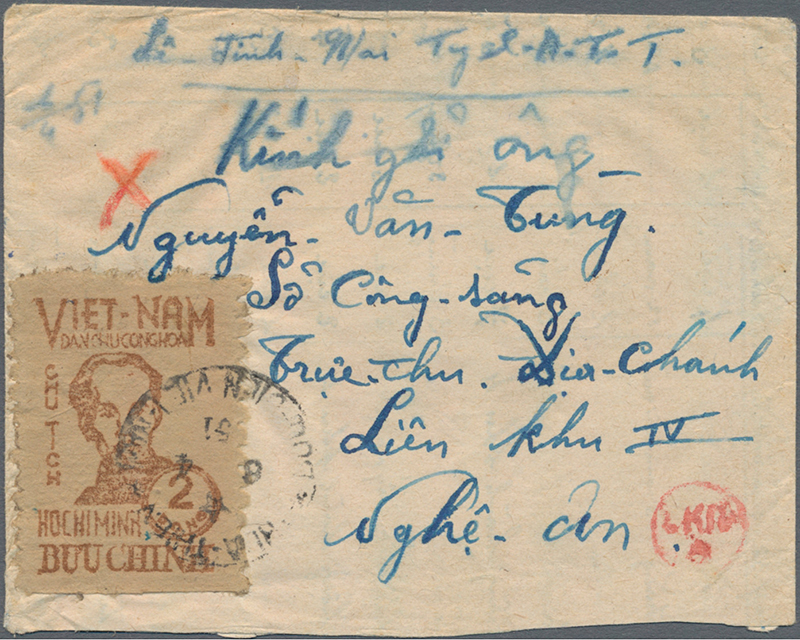 Lê - Tính - Mai Ty
4/4 51
Kính gửi ông
Nguyễn - Văn - Tùng.
Số Công - sảng
Trực - thu. Địa - Chánh
Liên khu IV
Nghệ - An.
VIET-NAM
DAN CHU CONG HOA
CHU TCH
2
HO CHI MINH
BUU CHINH
8 4
51
LKIV